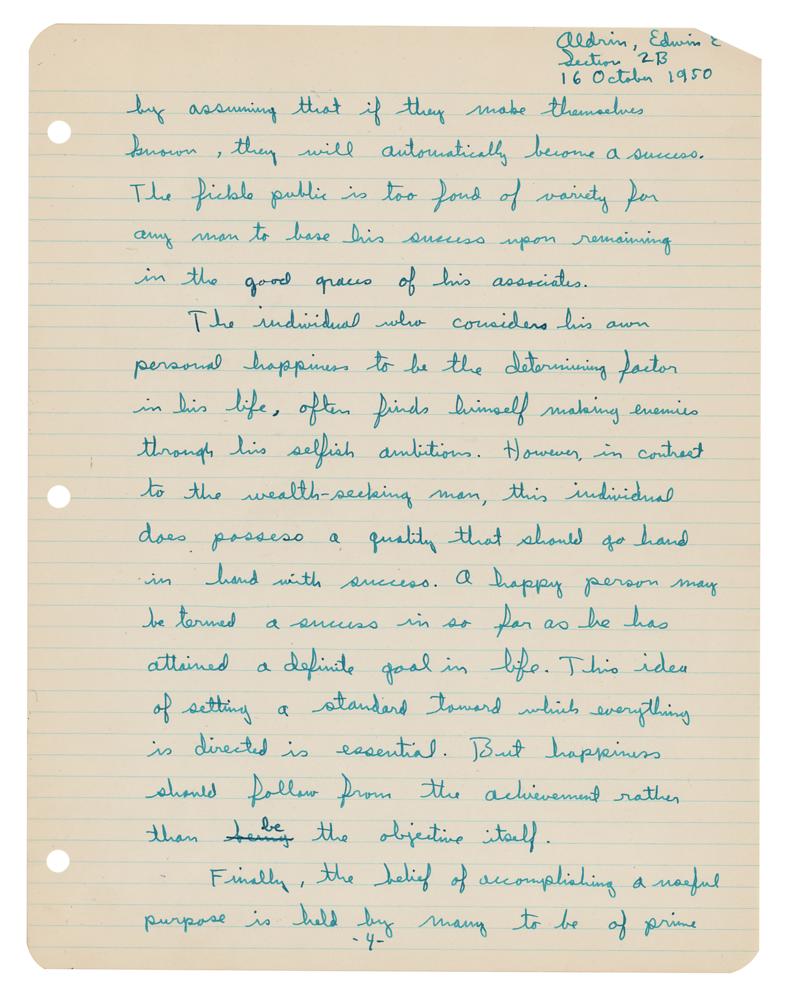 Aldrin, Edwin E
Section 2B
16 October 1950
by assuming that if they make themselves
known, they will automatically become a success.
The fickle public is too fond of variety for
any man to base his success upon remaining
in the good graces of his associates.
The individual who considers his own
personal happiness to be the determining factor
in his life, often finds himself making enemies
through his selfish ambitions. However, in contrast
to the wealth-seeking man, this individual
does possess a quality that should go hand
in hand with success. A happy person may
be termed a success in so far as he has
attained a definite goal in life. This idea
of setting a standard toward which everything
is directed is essential. But happiness
should follow from the achievement rather
than being be the objective itself.
Finally, the belief of accomplishing a useful
purpose is held by many to be of prime
-4-